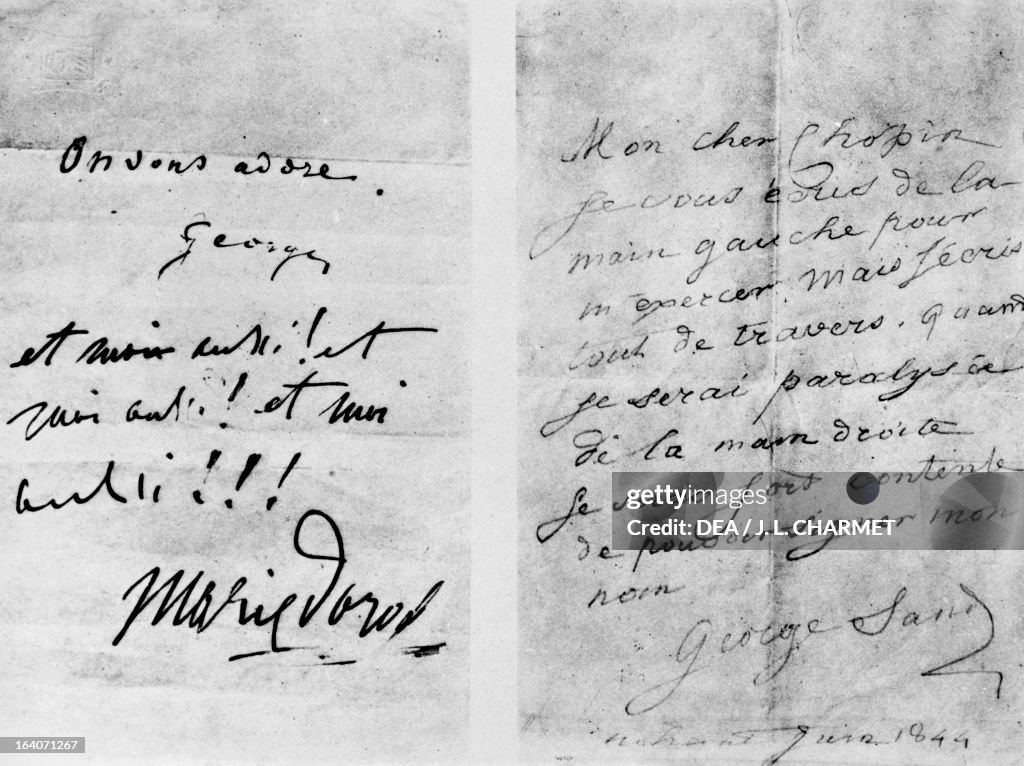 On vous adore.
George
et moi aussi! et
moi aussi! et moi
aussi!!!
Marie Dorval
Mon cher Chopin
Je vous écris de la
main gauche pour
m'exercer. Mais j'écris
tout de travers. Quand
je serai paralysée
de la main droite
je fort contente
de mon
nom
George Sand
nohant Juin 1844
gettyimages
DEA / J. L. CHARMET
164071267